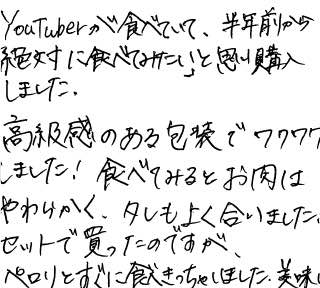 YouTuberが食べていて、半年前から
絶対に食べてみたい、と思い購入
しました。
高級感のある包装でワクワク
しました！食べてみるとお肉は
やわらかく、タレもよく合いました。
セットで買ったのですが、
ペロリとすぐに食べきっちゃいました。美味し